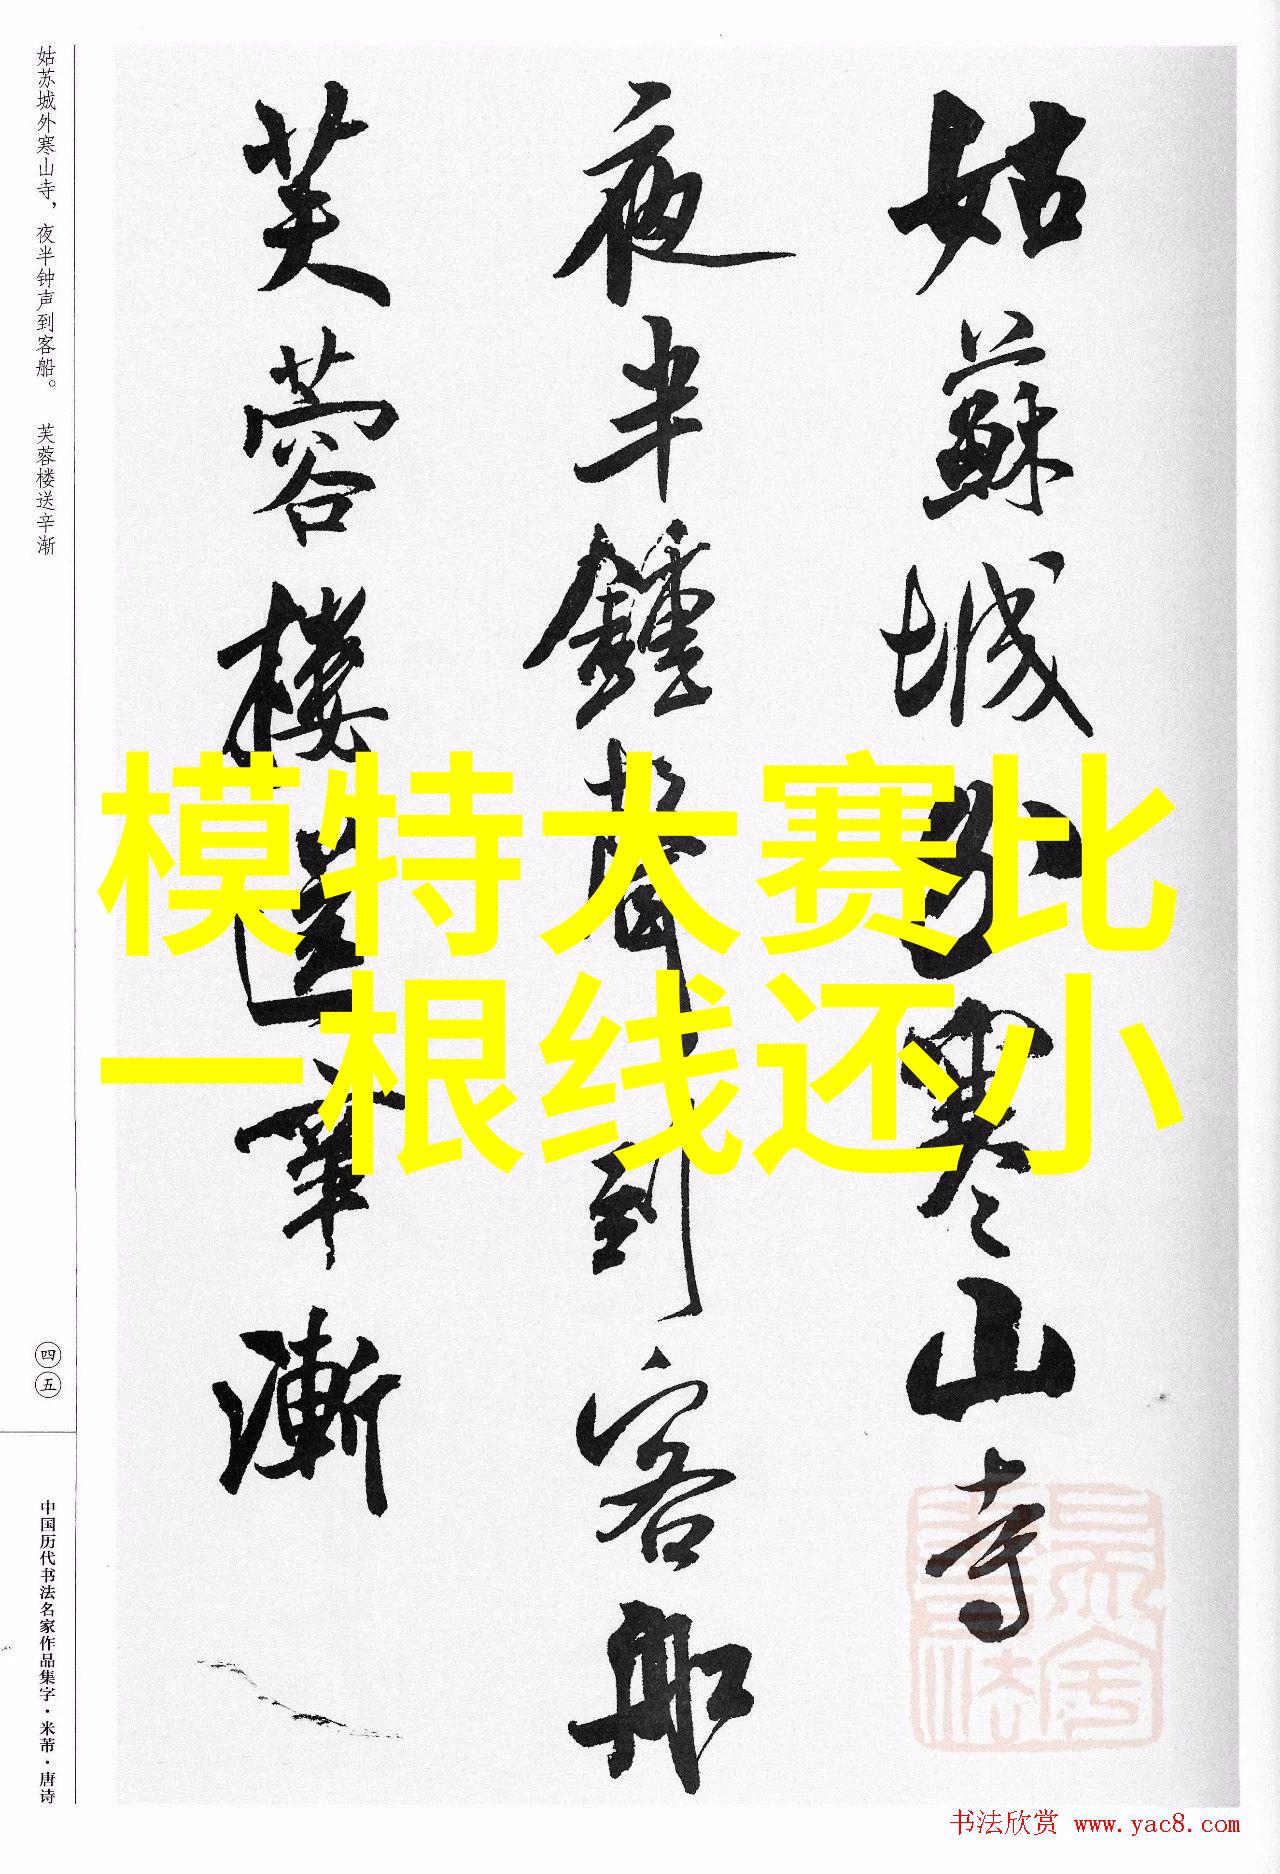 姑蘇城外寒山寺
夜半鍾聲到客船
芙蓉樓送辛漸
姑苏城外寒山寺，夜半钟声到客船。 芙蓉楼送辛渐
四五
中国历代书法名家作品集字·米芾·唐诗
模特大赛比
一根线还小
书法欣赏 www.yac8.com